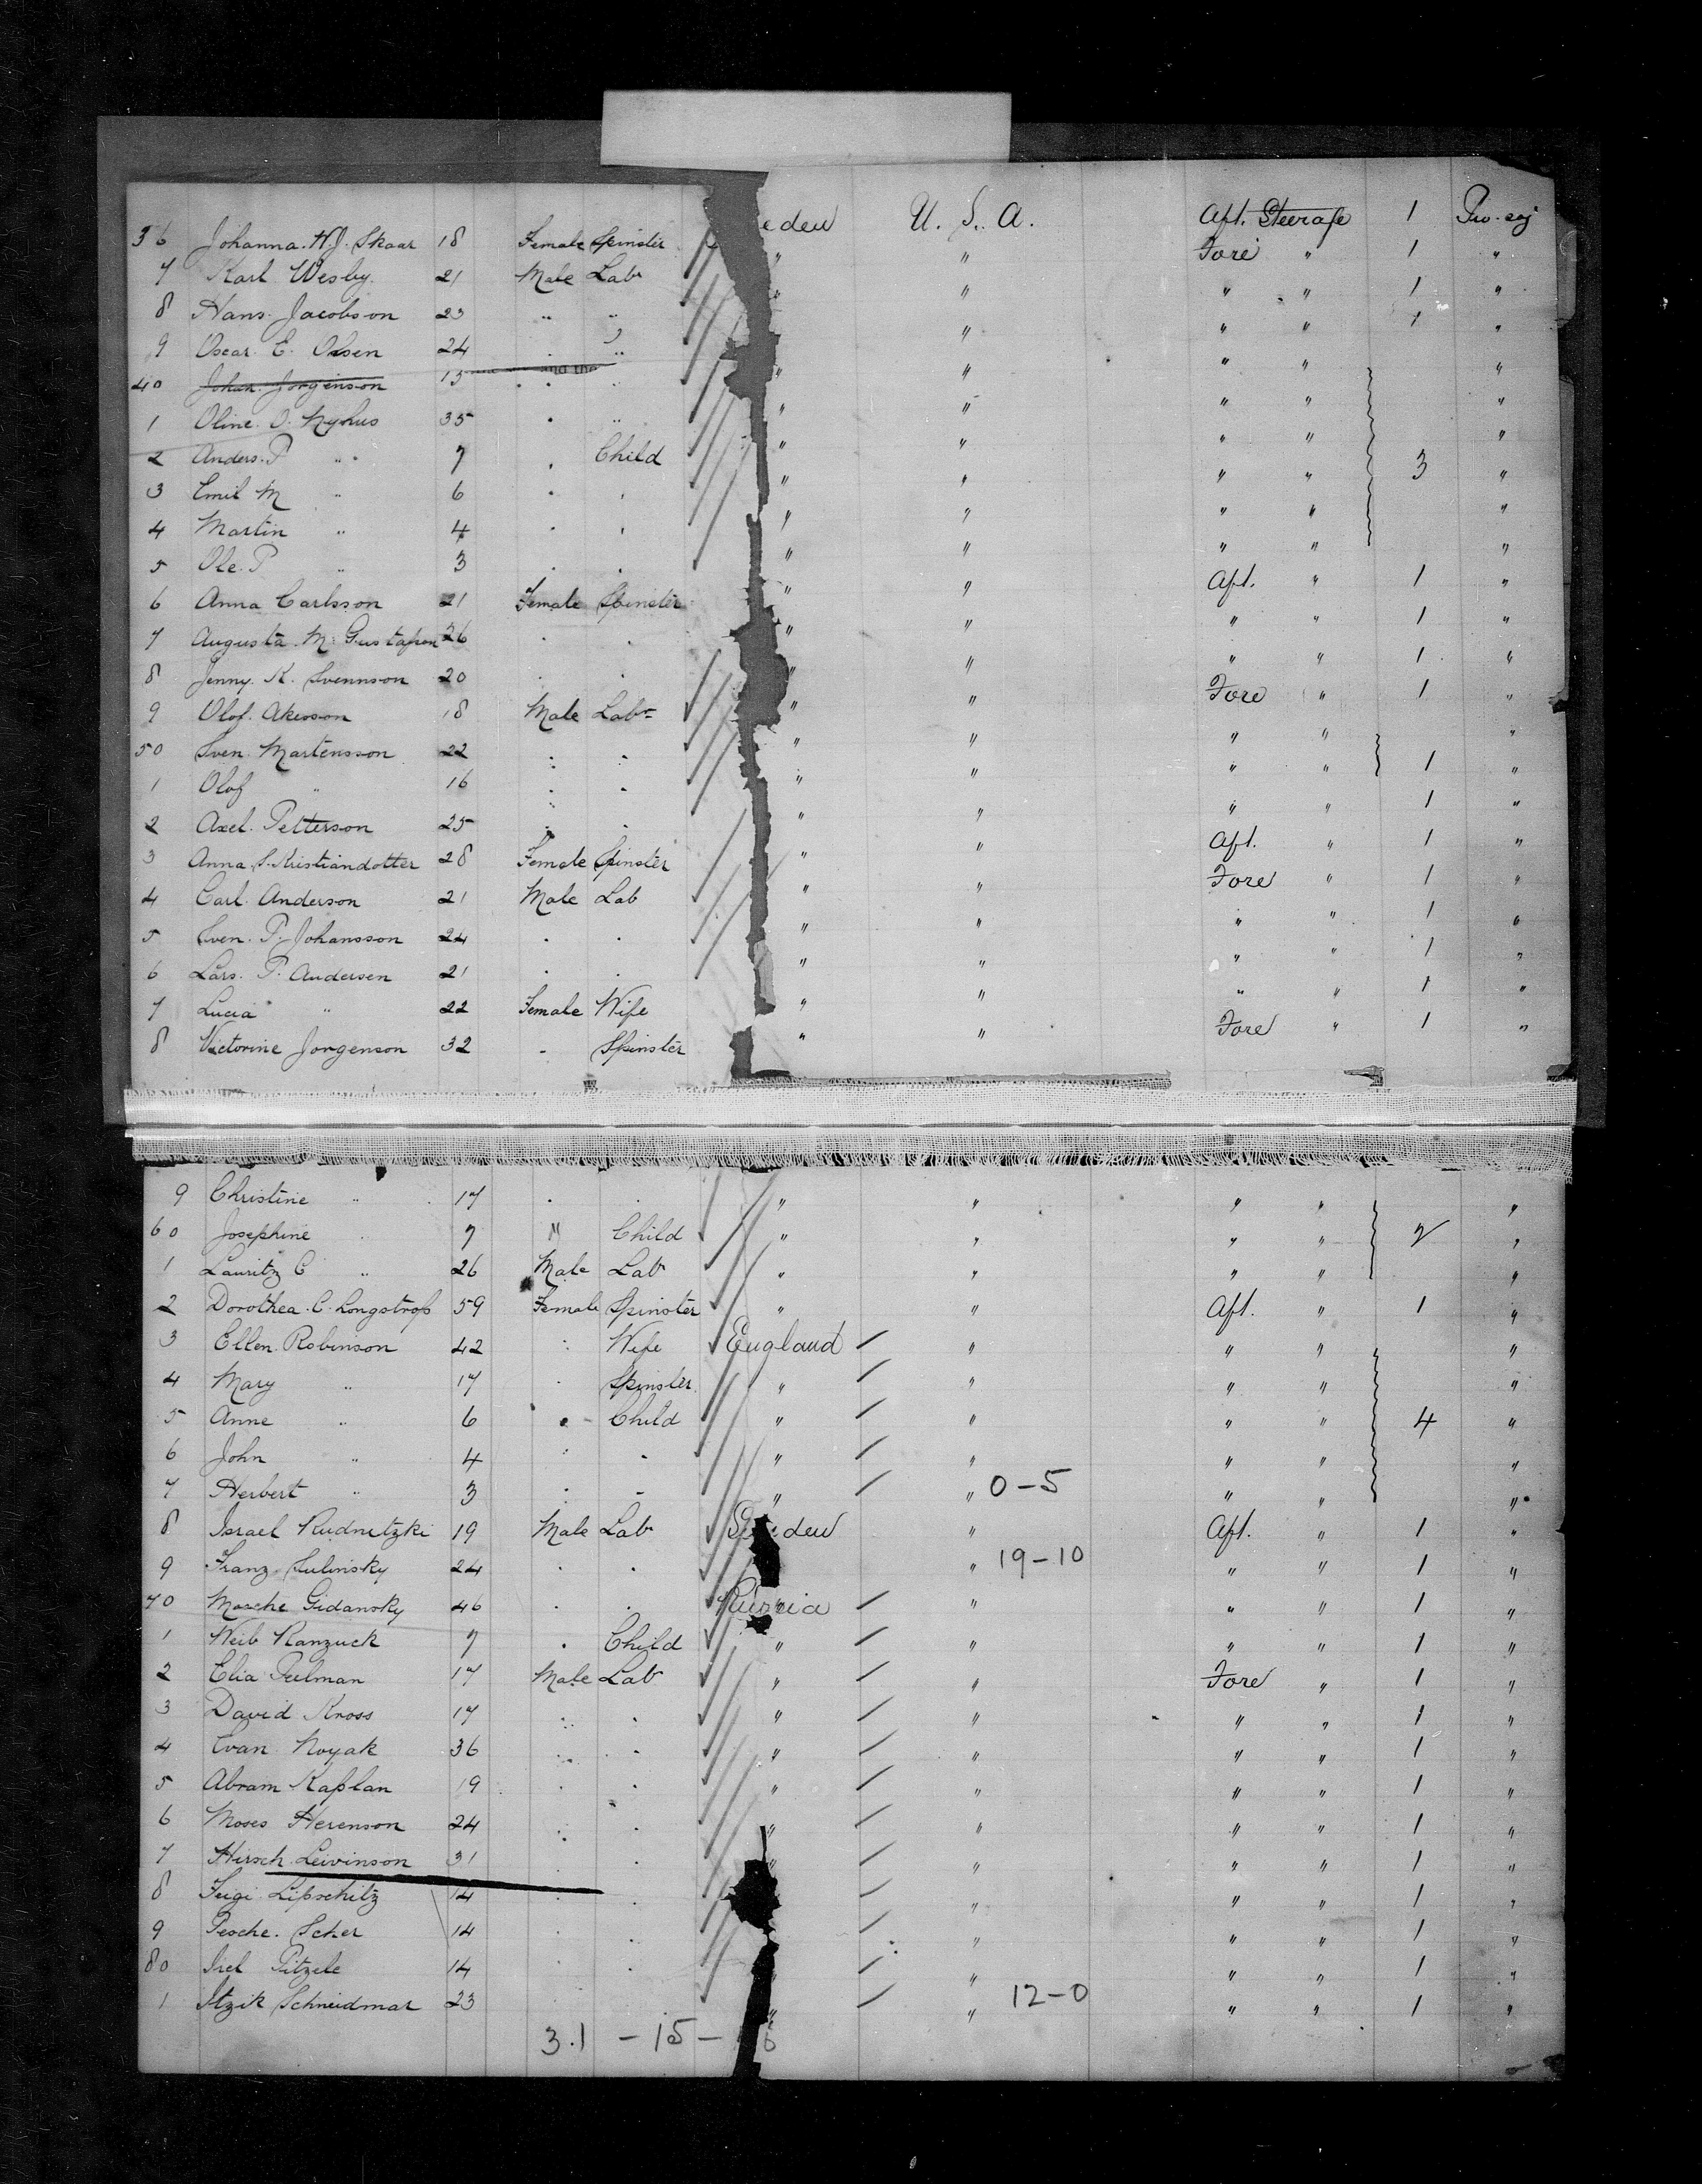 36 Johanna. H. J. Skaar 18 Female Spinster eden U. S. A. Aft. Steerage 1 Pro. soj
7 Karl Wesby. 21 Male Labr " " Fore " 1 "
8 Hans. Jacobson 23 " " " " " " 1 "
9 Oscar. E. Olsen 24 " " " " " " 1 "
40 Johan. Jorgenson 15 " " " " " " "
1 Oline. O. Nyhus 35 " " " " " " "
2 Anders. P " 7 " Child " " " " "
3 Emil M " 6 " " " " " " 3 "
4 Martin " 4 " " " " " " "
5 Ole. P " 3 " " " " " " "
6 Anna Carlsson 21 Female Spinster " " Aft. " 1 "
7 Augusta. M. Gustafson 26 " " " " " " 1 "
8 Jenny. K. Svennson 20 " " " " " " 1 "
9 Olof. Akesson 18 Male Labr " " Fore " 1 "
50 Sven. Martensson 22 " " " " " " "
1 Olof " 16 " " " " " " 1 "
2 Axel. Petterson 25 " " " " " " 1 "
3 Anna. S. Kristiandotter 28 Female Spinster " " Aft. " 1 "
4 Carl. Anderson 21 Male Lab " " Fore " 1 "
5 Sven. P. Johansson 24 " " " " " " 1 "
6 Lars. P. Andersen 21 " " " " " " 1 "
7 Lucia " 22 Female Wife " " " " 1 "
8 Victorine Jorgenson 32 " Spinster " " Fore " 1 "
9 Christine " 17 " " " " " " "
60 Josephine " 7 " Child " " " " 2 "
1 Lauritz C " 26 Male Labr " " " " "
2 Dorothea. C. Longstrop 59 Female Spinster " " Aft. " 1 "
3 Ellen. Robinson 42 " Wife England " " " "
4 Mary " 17 " Spinster " " " " "
5 Anne " 6 " Child " " " " 4 "
6 John " 4 " " " " " " "
7 Herbert " 3 " " " " 0-5 " " "
8 Israel Rudnetzki 19 Male Labr Sweden " Aft. " 1 "
9 Franz Sulinsky 24 " " " 19-10 " " 1 "
70 Mosche Gidansky 46 " " Russia " " " 1 "
1 Weib Ranzuck 7 " Child " " " " 1 "
2 Elia Pulman 17 Male Labr " " Fore " 1 "
3 David Kross 17 " " " " " " 1 "
4 Evan Noyak 36 " " " " " " 1 "
5 Abram Kaplan 19 " " " " " " 1 "
6 Moses Herenson 24 " " " " " " 1 "
7 Hirsch Leivinson 31 " " " " " " 1 "
8 Feigi Lipschitz 14 " " " " " 1 "
9 Pesche. Scher 14 " " " " " 1 "
80 Srel Pitzele 14 " " " " " 1 "
1 Itzik Schneidmar 23 " " 12-0 " " 1 "
3.1 - 15 -